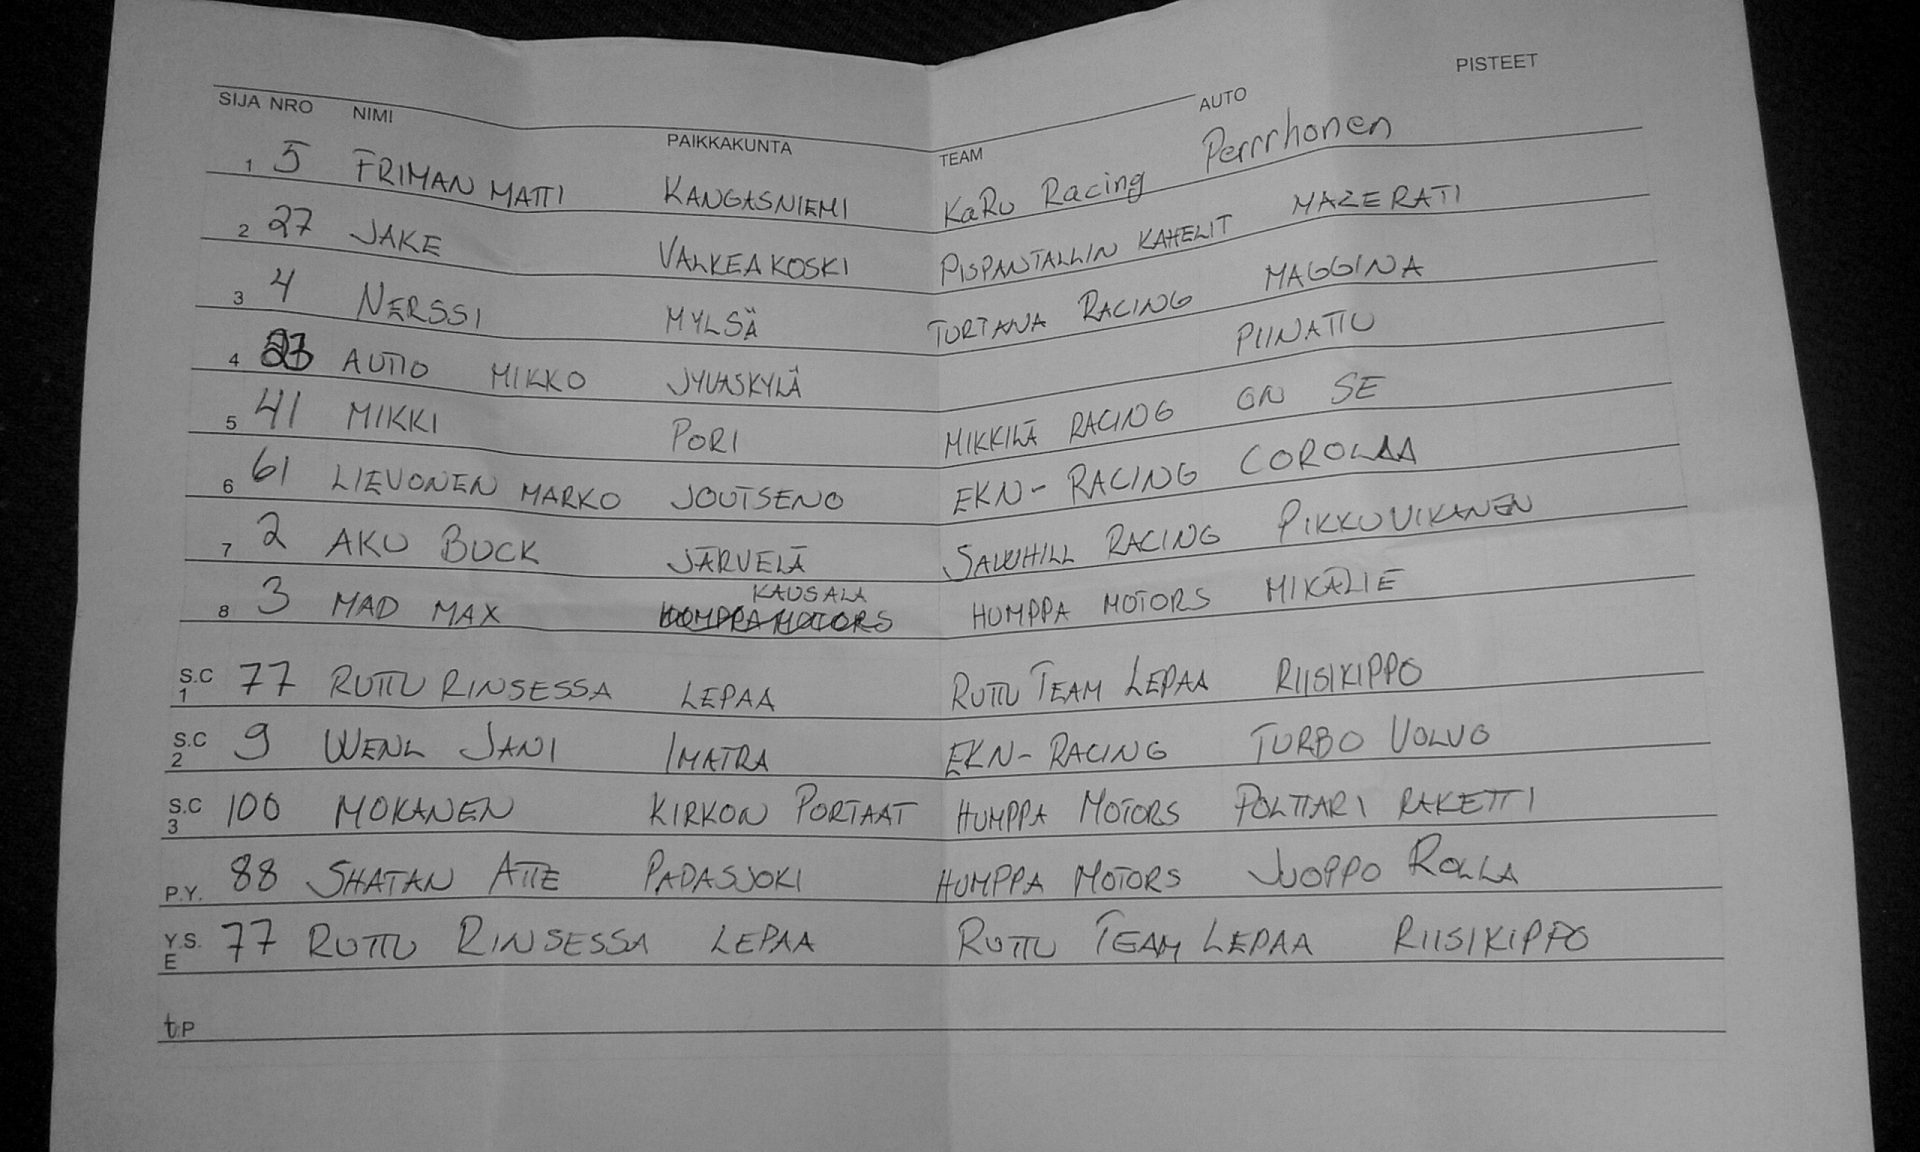 SIJA NRO NIMI PAIKKAKUNTA TEAM AUTO PISTEET
1 5 FRIMAN MATTI KANGASNIEMI KaRu Racing Perrrhonen
2 27 JAKE VALKEAKOSKI PISPANTALLIN KAHELIT MAZERATI
3 4 NERSSI MYLSÄ TURTANA RACING MAGGINA
4 AUTIO MIKKO JYVÄSKYLÄ PIINATTU
5 41 MIKKI PORI MIKKILÄ RACING ON SE
6 61 LIEVONEN MARKO JOUTSENO EKN-RACING COROLAA
7 2 AKU BUCK JÄRVELÄ SAWHILL RACING PIKKUVIKANEN
8 3 MAD MAX KAUSALA HUMPPA MOTORS MIKÄLIE
S.C 1 77 RUTTU RINSESSA LEPAA RUTTU TEAM LEPAA RIISIKIPPO
S.C 2 9 WENL JANI IMATRA EKN-RACING TURBO VOLVO
S.C 3 100 MOKANEN KIRKON PORTAAT HUMPPA MOTORS POLTTARI RAKETTI
P.Y. 88 SHATAN ATTE PADASJOKI HUMPPA MOTORS JUOPPO ROLLA
Y.S. E 77 RUTTU RINSESSA LEPAA RUTTU TEAM LEPAA RIISIKIPPO
tP